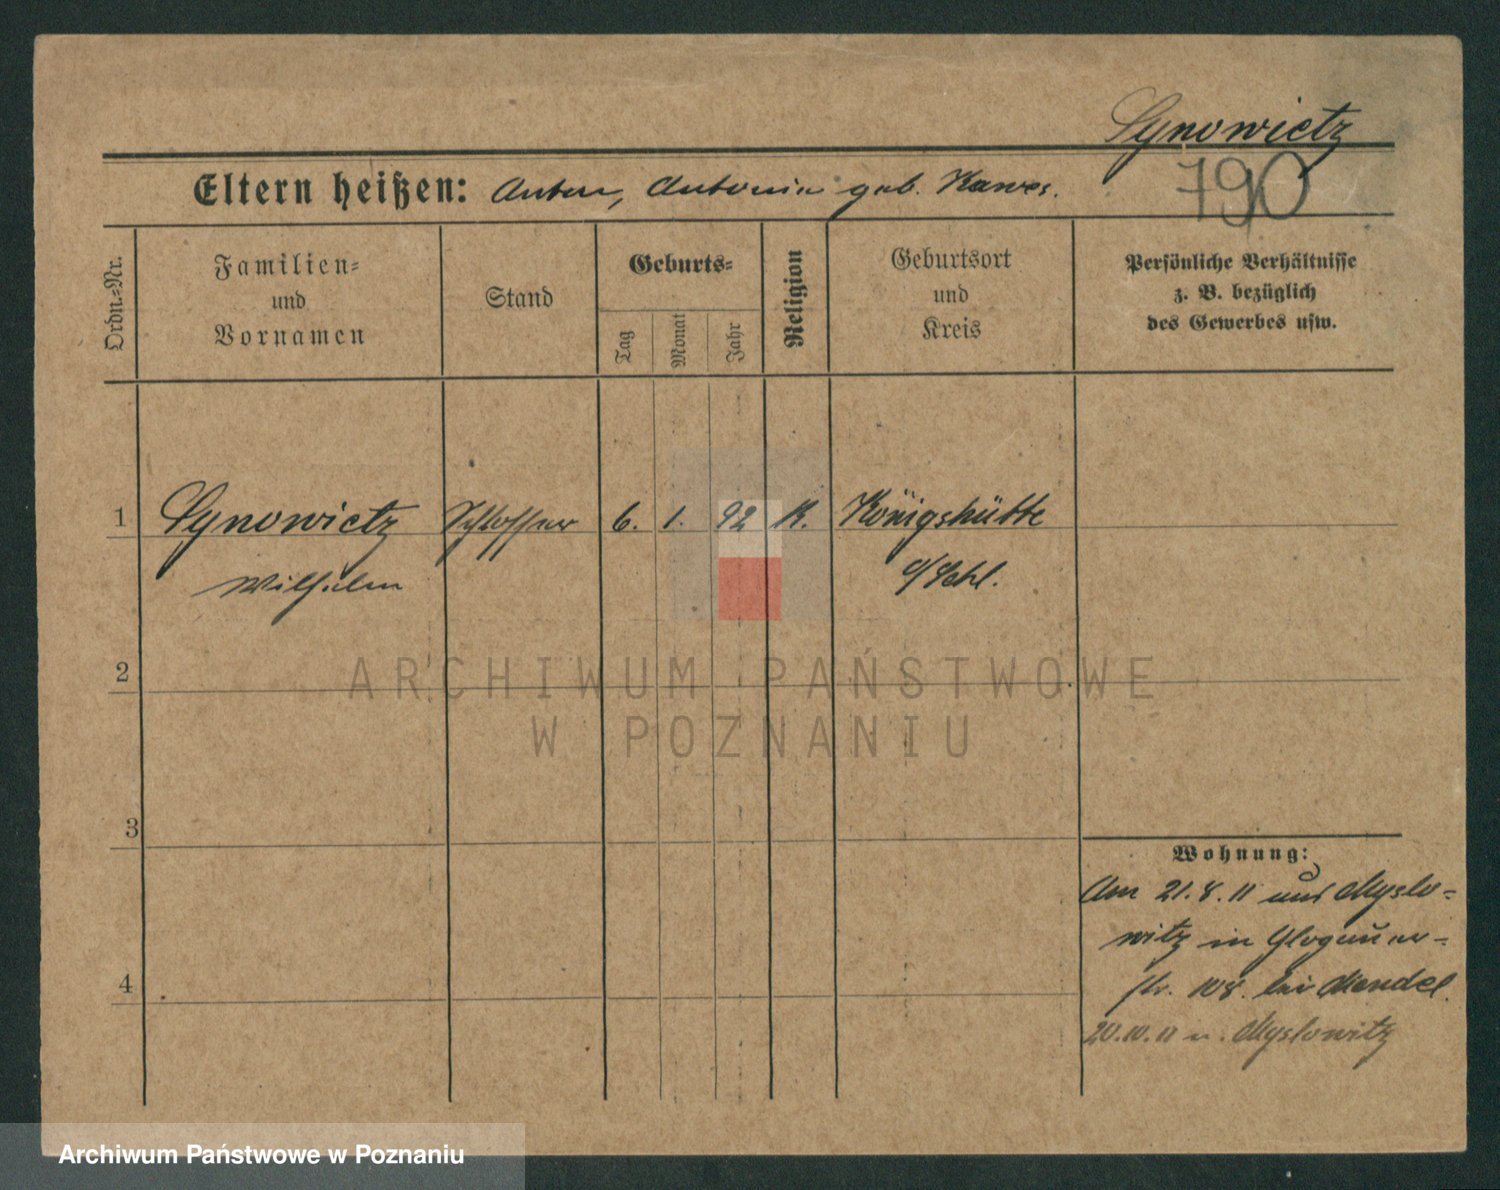 Synowietz
790
Eltern heißen: Anton, Antonia geb. Kawes.
Ordn.=Nr.
Familien=
und
Vornamen
Stand
Geburts=
Tag
Monat
Jahr
Religion
Geburtsort
und
Kreis
Persönliche Verhältnisse
z. B. bezüglich
des Gewerbes usw.
1 Synowietz Schlosser 6. 1. 92 K. Königshütte
Wilhelm O/Schl.
2
3
4
Wohnung:
Am 21.8.11 aus Myslo=
witz in Glogauer=
str. 108. bei Mendel.
20.10.11 n. Myslowitz
ARCHIWUM PAŃSTWOWE
W POZNANIU
Archiwum Państwowe w Poznaniu